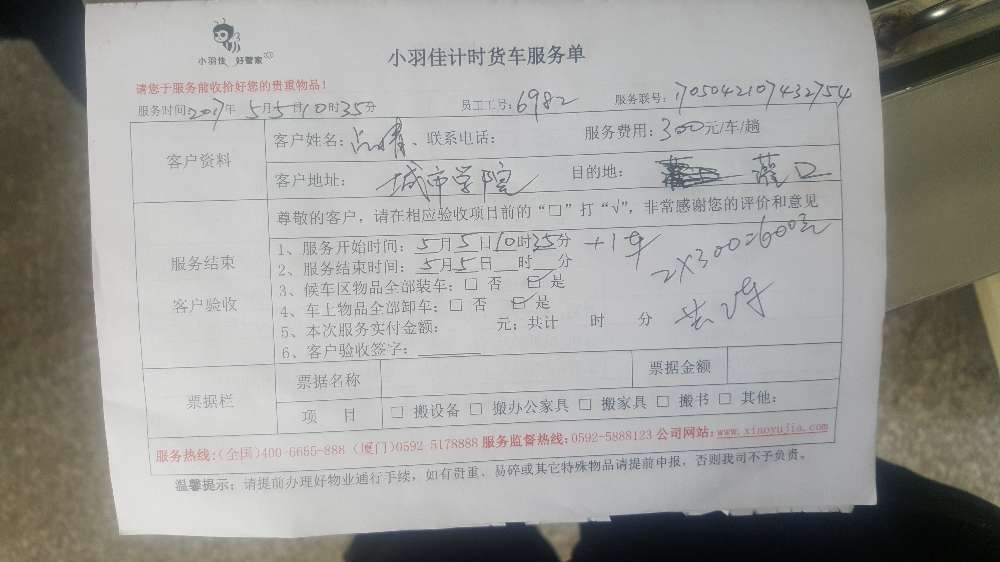 小羽佳 好管家
小羽佳计时货车服务单
请您于服务前收拾好您的贵重物品！
服务时间2017年 5月5日10时35分 员工工号：6982 服务联号：1705042107432754
客户资料
客户姓名： 联系电话： 服务费用：300元/车/趟
客户地址： 城市学院 目的地： 灌口
服务结束
客户验收
尊敬的客户，请在相应验收项目前的“□”打“√”，非常感谢您的评价和意见
1、服务开始时间：5月5日10时35分 +1车
2、服务结束时间：5月5日 时 分
2×300=600元
3、候车区物品全部装车：□ 否 ☑ 是
4、车上物品全部卸车：□ 否 ☑ 是
共2车
5、本次服务实付金额： 元；共计 时 分
6、客户验收签字：
票据栏
票据名称 票据金额
项 目 □ 搬设备 □ 搬办公家具 □ 搬家具 □ 搬书 □ 其他：
服务热线：（全国）400-6655-888（厦门）0592-5178888 服务监督热线：0592-5888123 公司网站：www.xiaoyujia.com
温馨提示：请提前办理好物业通行手续，如有贵重、易碎或其它特殊物品请提前申报，否则我司不予负责。